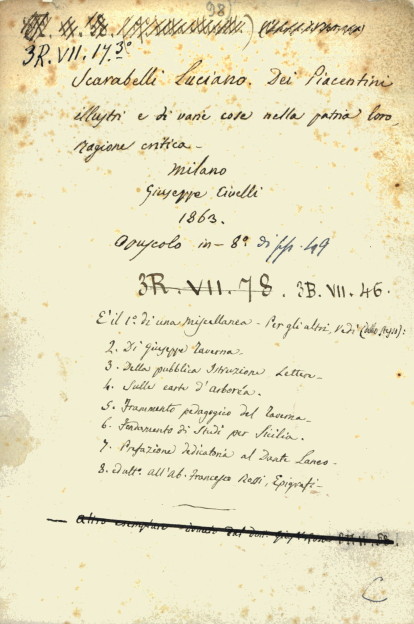 98
3R. VII. 17. 3º
Scarabelli Luciano. Dei Piacentini
illustri e di varie cose nella patria loro,
ragione critica -
Milano
Giuseppe Civelli
1863.
Opuscolo in - 8º di pp. 49
3R. VII. 78. 3B. VII. 46.
E' il 1º di una miscellanea - Per gli altri, Vedi
2. Di Giuseppe Taverna.
3. Della pubblica Istruzione Lettera -
4. Sulle carte d'Arborea.
5. Frammento pedagogico del Taverna.
6. Fondamento di Studi per Sicilia.
7. Prefazione dedicatoria al Dante Laneo -
8. all'Ab. Francesco Epigrafi -
Altro esemplare donato dal
C